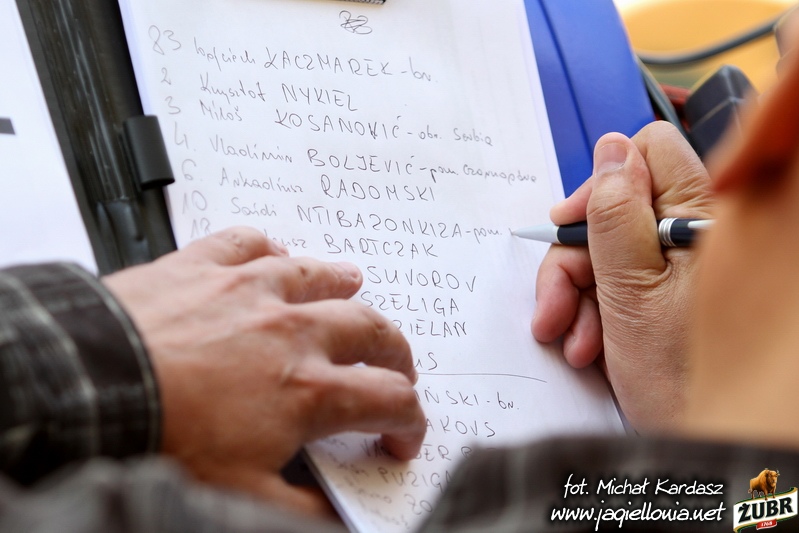 83 Wojciech KACZMAREK - br.
2 Krzysztof NYKIEL
3 Miloš KOSANOVIĆ - obr. Serbia
4. Vladimir BOLJEVIĆ - pom. Czarnogóra
6. Arkadiusz RADOMSKI
10 Saidi NTIBAZONKIZA - pom.
BARTCZAK
SUVOROV
SZELIGA
IELAN
US
IŃSKI - br.
AKOVS
PUZIG
fot. Michał Kardasz
www.jagiellonia.net
ŻUBR
1768